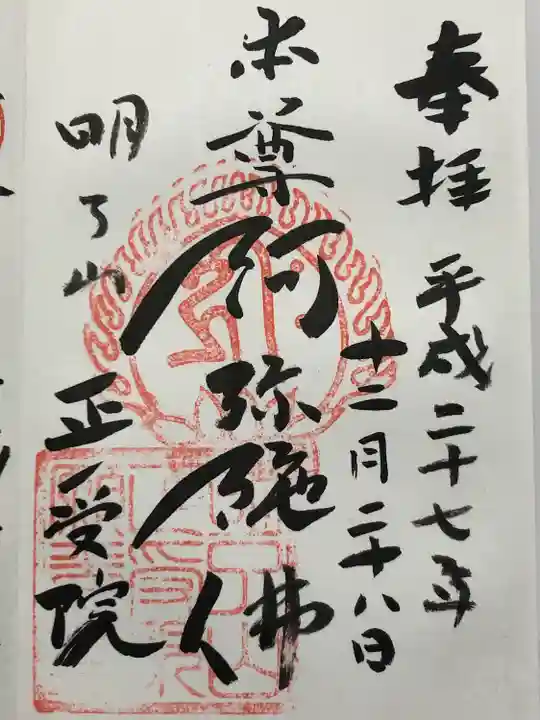 奉拝 平成二十七年
十二月二十八日
本尊阿弥陀佛
明了山 正受院